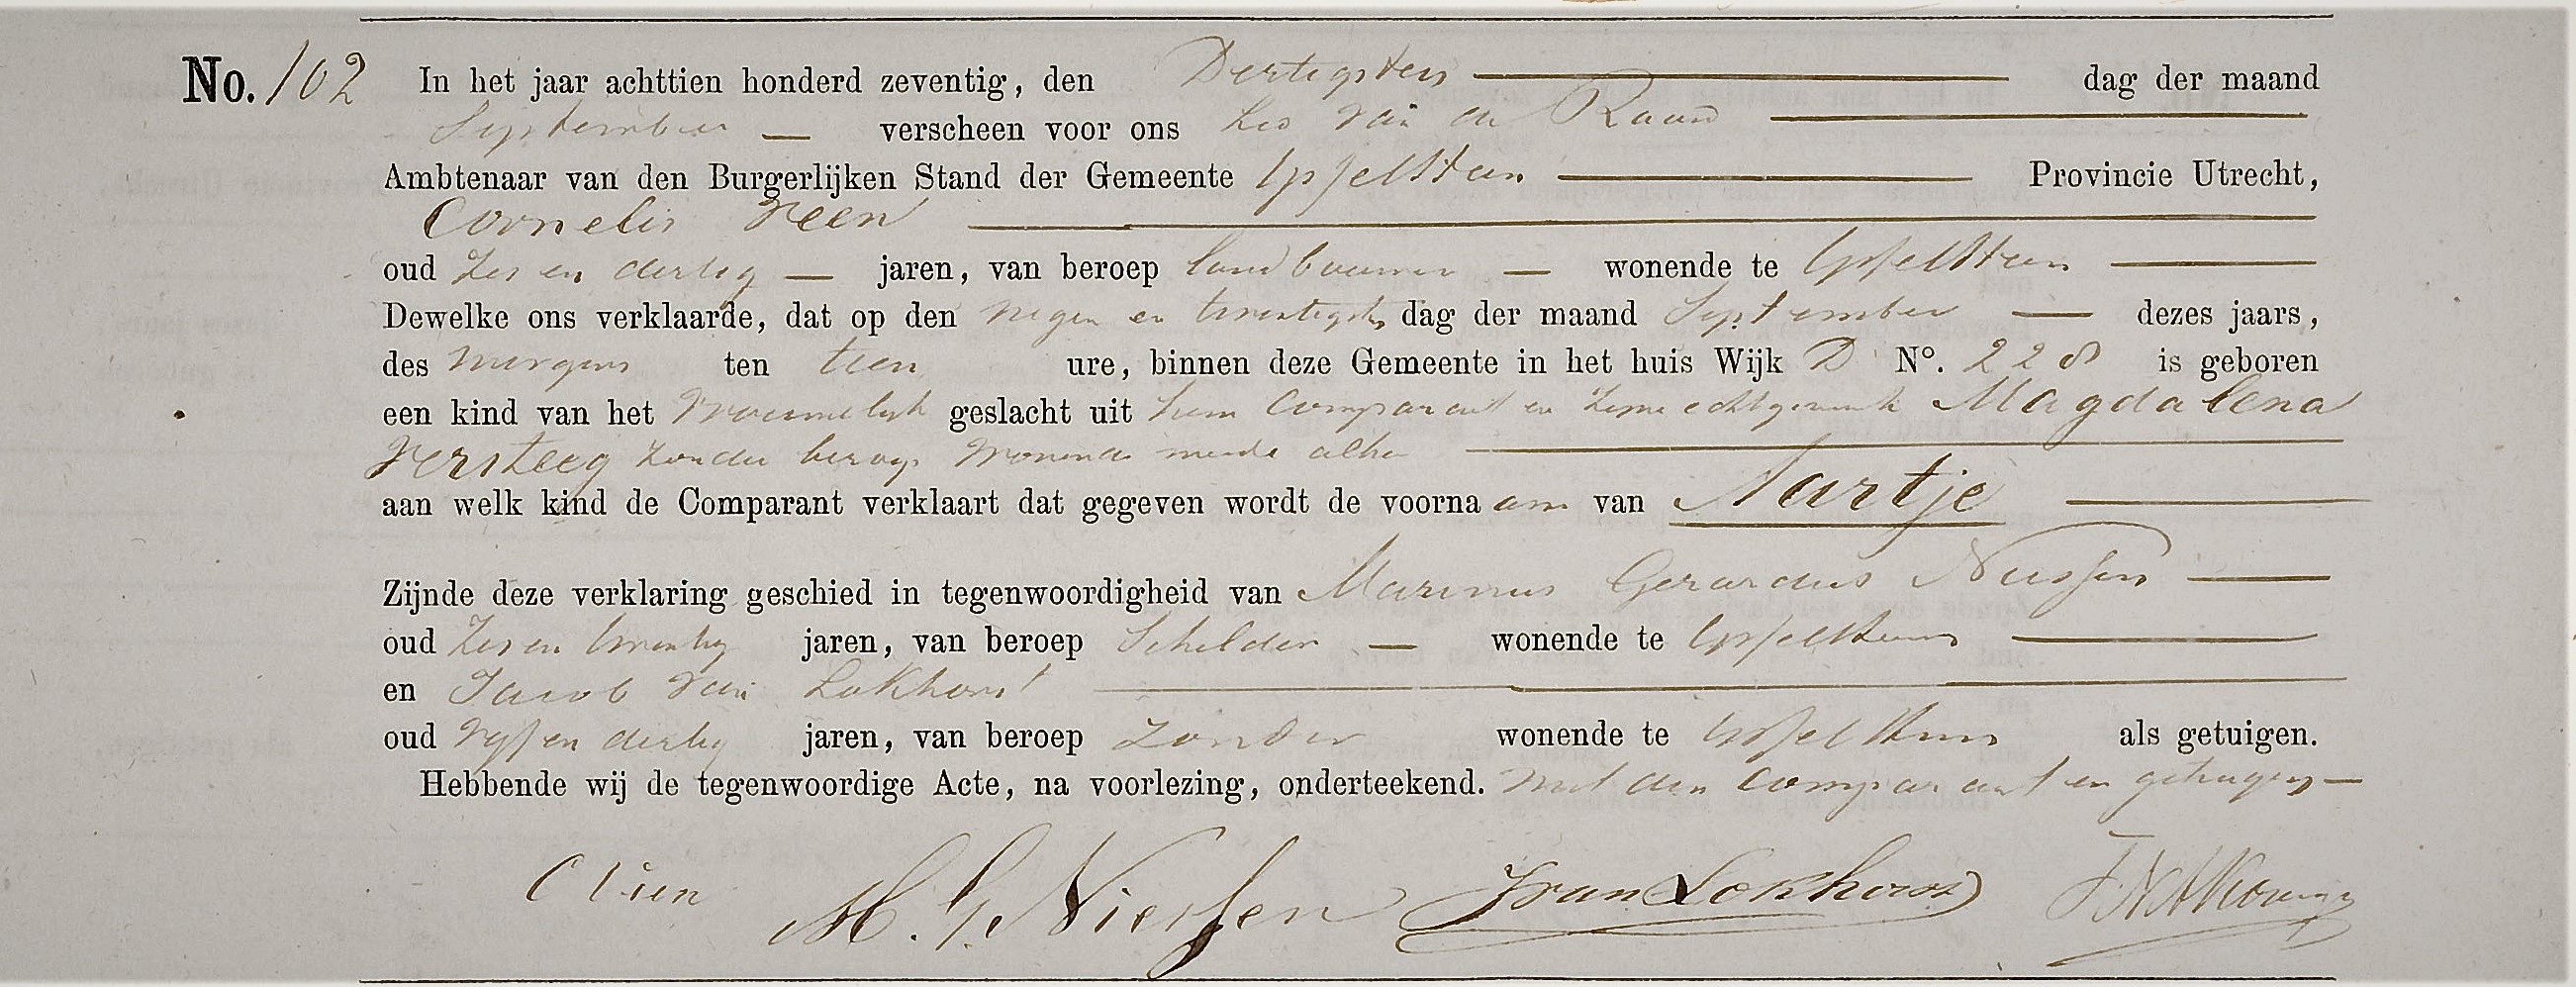 No. 102 In het jaar achttien honderd zeventig, den Dertigsten dag der maand
September verscheen voor ons van de
Ambtenaar van den Burgerlijken Stand der Gemeente IJsselstein Provincie Utrecht,
Cornelis Veen
oud Zes en dertig jaren, van beroep landbouwer wonende te IJsselstein
Dewelke ons verklaarde, dat op den negen en twintigsten dag der maand September dezes jaars,
des morgens ten tien ure, binnen deze Gemeente in het huis Wijk D No. 228 is geboren
een kind van het Vrouwelijk geslacht uit hem Comparant en zijne echtgenoote Magdalena
Versteeg zonder beroep wonende mede alhier
aan welk kind de Comparant verklaart dat gegeven wordt de voornaam van Aartje
Zijnde deze verklaring geschied in tegenwoordigheid van Marinus Gerardus
oud Zes en twintig jaren, van beroep Schilder wonende te IJsselstein
en Jacob van Lokhorst
oud Vijf en dertig jaren, van beroep zonder wonende te IJsselstein als getuigen.
Hebbende wij de tegenwoordige Acte, na voorlezing, onderteekend. met den Comparant en getuigen
C Vien M. G. Niessen J van Lokhorst